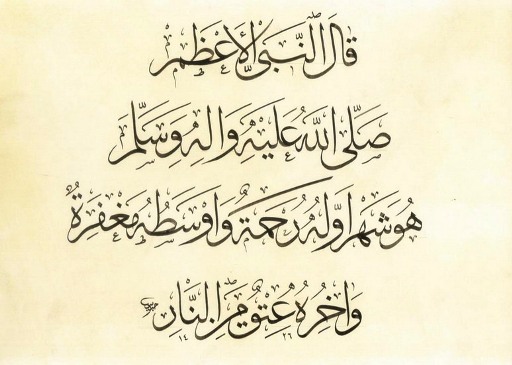 قَالَ النَّبِىُّ الْأَعْظَمُ
صَلَّى اللهُ عَلَيْهِ وَاٰلِهِ وَسَلَّمَ
هُوَ شَهْرٌ اَوَّلُهُ رَحْمَةٌ وَاَوْسَطُهُ مَغْفِرَةٌ
وَاٰخِرُهُ عِتْقٌ مِنَ النَّارِ
١٤ ٢٦